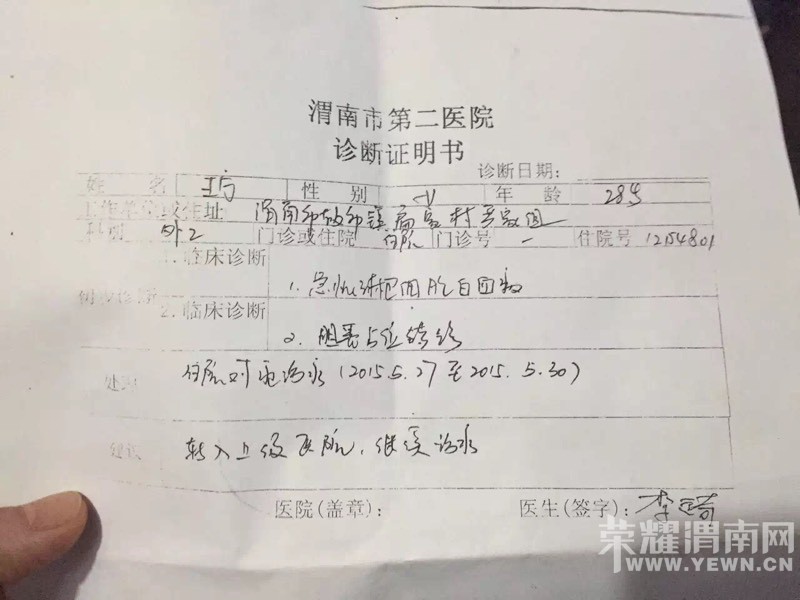 渭南市第二医院
诊断证明书
诊断日期:
姓 名 性 别 女 年 龄 28岁
工作单位或住址 渭南市故市镇
科别 外2 门诊或住院 住院 门诊号 — 住院号 12154801
1.临床诊断 1.急性淋巴细胞白血病
初步诊断
2.临床诊断 2.胆囊占位
处理 住院对症治疗(2015.5.27至2015.5.30)
建议 转入上级医院,继续治疗
医院(盖章): 医生(签字):
荣耀渭南网
WWW.YEWN.CN